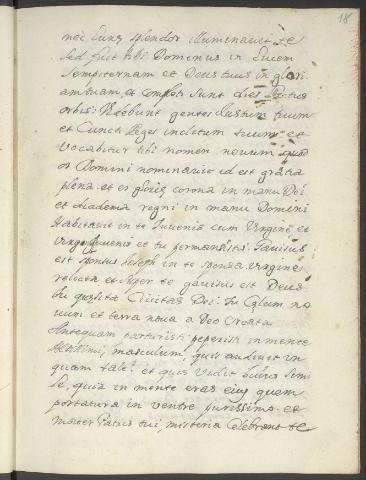 18
nec Lunę splendor illuminavit te
sed fuit tibi Dominus in Lucem
sempiternam et Deus tuus in glori
am tuam, et completi sunt dies Partus
orbis: Videbunt gentes Iustum tuum
et Cuncti Reges inclitum tuum et
vocabitur tibi nomen novum quod
os Domini nominavit id est gratia
plena et es glorię corona in manu Dei
et diadema regni in manu Domini
Habitavit in te Iuvenis cum Virgine, et
virgo Iuvenis et tu permansisti. Gavisus
est sponsus Ioseph in te sponsa virgine
relicta et super te gavisus est Deus
tu quęsita Civitas Dei: tu Cęlum no
uum et terra nova a Deo Creata
Antequam parturisti peperisti in mente
Altissimi, masculum, quis audivit un
quam tale? et quis vidit huius simi
le, quia in mente eras eius quem
portatura in ventre purissimo et
Mater Patris tui, misteria celebrant te